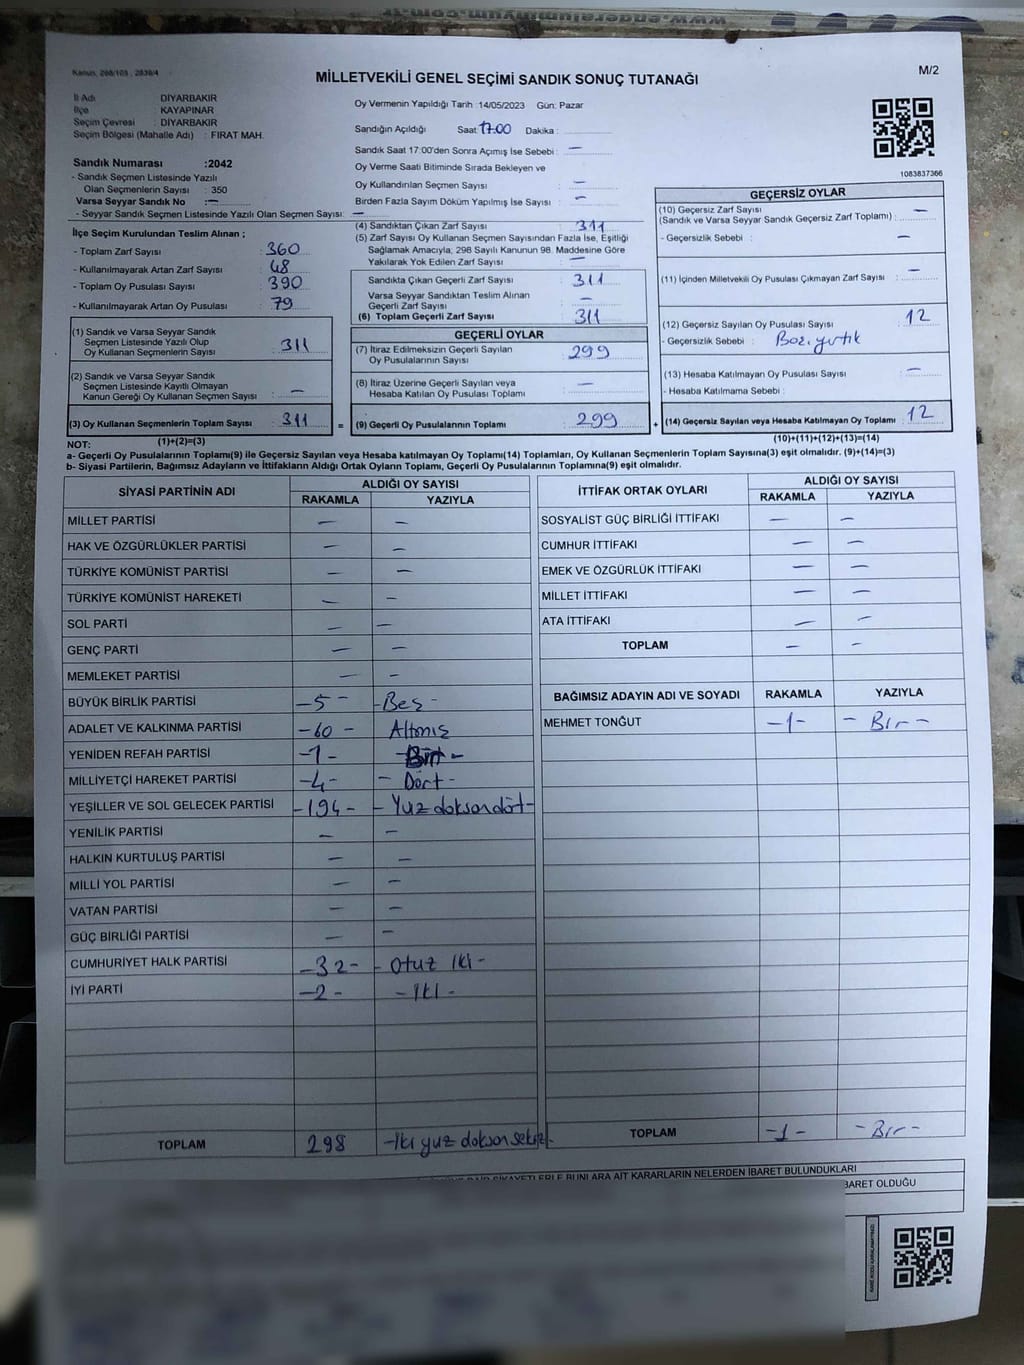 www.enderaluminyum.com.tr
Kanun, 298/103 , 2839/4
MİLLETVEKİLİ GENEL SEÇİMİ SANDIK SONUÇ TUTANAĞI
M/2
İl Adı : DİYARBAKIR
İlçe : KAYAPINAR
Seçim Çevresi : DİYARBAKIR
Seçim Bölgesi (Mahalle Adı) : FIRAT MAH.
Sandık Numarası :2042
- Sandık Seçmen Listesinde Yazılı
Olan Seçmenlerin Sayısı : 350
Varsa Seyyar Sandık No : —
- Seyyar Sandık Seçmen Listesinde Yazılı Olan Seçmen Sayısı: —
İlçe Seçim Kurulundan Teslim Alınan ;
- Toplam Zarf Sayısı : 360
- Kullanılmayarak Artan Zarf Sayısı : 48
- Toplam Oy Pusulası Sayısı : 390
- Kullanılmayarak Artan Oy Pusulası : 79
(1) Sandık ve Varsa Seyyar Sandık
Seçmen Listesinde Yazılı Olup
Oy Kullanan Seçmenlerin Sayısı : 311
(2) Sandık ve Varsa Seyyar Sandık
Seçmen Listesinde Kayıtlı Olmayan
Kanun Gereği Oy Kullanan Seçmen Sayısı : —
(3) Oy Kullanan Seçmenlerin Toplam Sayısı : 311
(1)+(2)=(3)
Oy Vermenin Yapıldığı Tarih :14/05/2023 Gün: Pazar
Sandığın Açıldığı Saat 17.00 Dakika :
Sandık Saat 17:00'den Sonra Açımış İse Sebebi : —
Oy Verme Saati Bitiminde Sırada Bekleyen ve
Oy Kullandırılan Seçmen Sayısı : —
Birden Fazla Sayım Döküm Yapılmış İse Sayısı : —
(4) Sandıktan Çıkan Zarf Sayısı : 311
(5) Zarf Sayısı Oy Kullanan Seçmen Sayısından Fazla İse, Eşitliği
Sağlamak Amacıyla; 298 Sayılı Kanunun 98. Maddesine Göre
Yakılarak Yok Edilen Zarf Sayısı : —
Sandıkta Çıkan Geçerli Zarf Sayısı : 311
Varsa Seyyar Sandıktan Teslim Alınan
Geçerli Zarf Sayısı : —
(6) Toplam Geçerli Zarf Sayısı : 311
GEÇERLİ OYLAR
(7) İtiraz Edilmeksizin Geçerli Sayılan
Oy Pusulalarının Sayısı : 299
(8) İtiraz Üzerine Geçerli Sayılan veya
Hesaba Katılan Oy Pusulası Toplamı : —
= (9) Geçerli Oy Pusulalarının Toplamı : 299 +
1083837366
GEÇERSİZ OYLAR
(10) Geçersiz Zarf Sayısı
(Sandık ve Varsa Seyyar Sandık Geçersiz Zarf Toplamı) : —
- Geçersizlik Sebebi : —
(11) İçinden Milletvekili Oy Pusulası Çıkmayan Zarf Sayısı : —
(12) Geçersiz Sayılan Oy Pusulası Sayısı : 12
- Geçersizlik Sebebi :
(13) Hesaba Katılmayan Oy Pusulası Sayısı : —
- Hesaba Katılmama Sebebi :
(14) Geçersiz Sayılan veya Hesaba Katılmayan Oy Toplamı : 12
(10)+(11)+(12)+(13)=(14)
NOT:
a- Geçerli Oy Pusulalarının Toplamı(9) ile Geçersiz Sayılan veya Hesaba katılmayan Oy Toplamı(14) Toplamları, Oy Kullanan Seçmenlerin Toplam Sayısına(3) eşit olmalıdır. (9)+(14)=(3)
b- Siyasi Partilerin, Bağımsız Adayların ve İttifakların Aldığı Ortak Oyların Toplamı, Geçerli Oy Pusulalarının Toplamına(9) eşit olmalıdır.
SİYASİ PARTİNİN ADI
ALDIĞI OY SAYISI
RAKAMLA YAZIYLA
MİLLET PARTİSİ — —
HAK VE ÖZGÜRLÜKLER PARTİSİ — —
TÜRKİYE KOMÜNİST PARTİSİ — —
TÜRKİYE KOMÜNİST HAREKETİ — —
SOL PARTİ — —
GENÇ PARTİ — —
MEMLEKET PARTİSİ — —
BÜYÜK BİRLİK PARTİSİ -5- -Beş-
ADALET VE KALKINMA PARTİSİ -60- Altmış
YENİDEN REFAH PARTİSİ -1- -Bir-
MİLLİYETÇİ HAREKET PARTİSİ -4- - Dört -
YEŞİLLER VE SOL GELECEK PARTİSİ -194- - Yuz doksan dört-
YENİLİK PARTİSİ — —
HALKIN KURTULUŞ PARTİSİ — —
MİLLİ YOL PARTİSİ — —
VATAN PARTİSİ — —
GÜÇ BİRLİĞİ PARTİSİ — —
CUMHURİYET HALK PARTİSİ -32- - Otuz iki -
İYİ PARTİ -2- - iki -
TOPLAM 298 -iki yuz doksan sekiz-
İTTİFAK ORTAK OYLARI
ALDIĞI OY SAYISI
RAKAMLA YAZIYLA
SOSYALİST GÜÇ BİRLİĞİ İTTİFAKI — —
CUMHUR İTTİFAKI — —
EMEK VE ÖZGÜRLÜK İTTİFAKI — —
MİLLET İTTİFAKI — —
ATA İTTİFAKI — —
TOPLAM — —
BAĞIMSIZ ADAYIN ADI VE SOYADI RAKAMLA YAZIYLA
MEHMET TONĞUT -1- - Bir -
TOPLAM -1- - Bir -
ŞİKAYETLERLE BUNLARA AİT KARARLARIN NELERDEN İBARET BULUNDUKLARI
BARET OLDUĞU